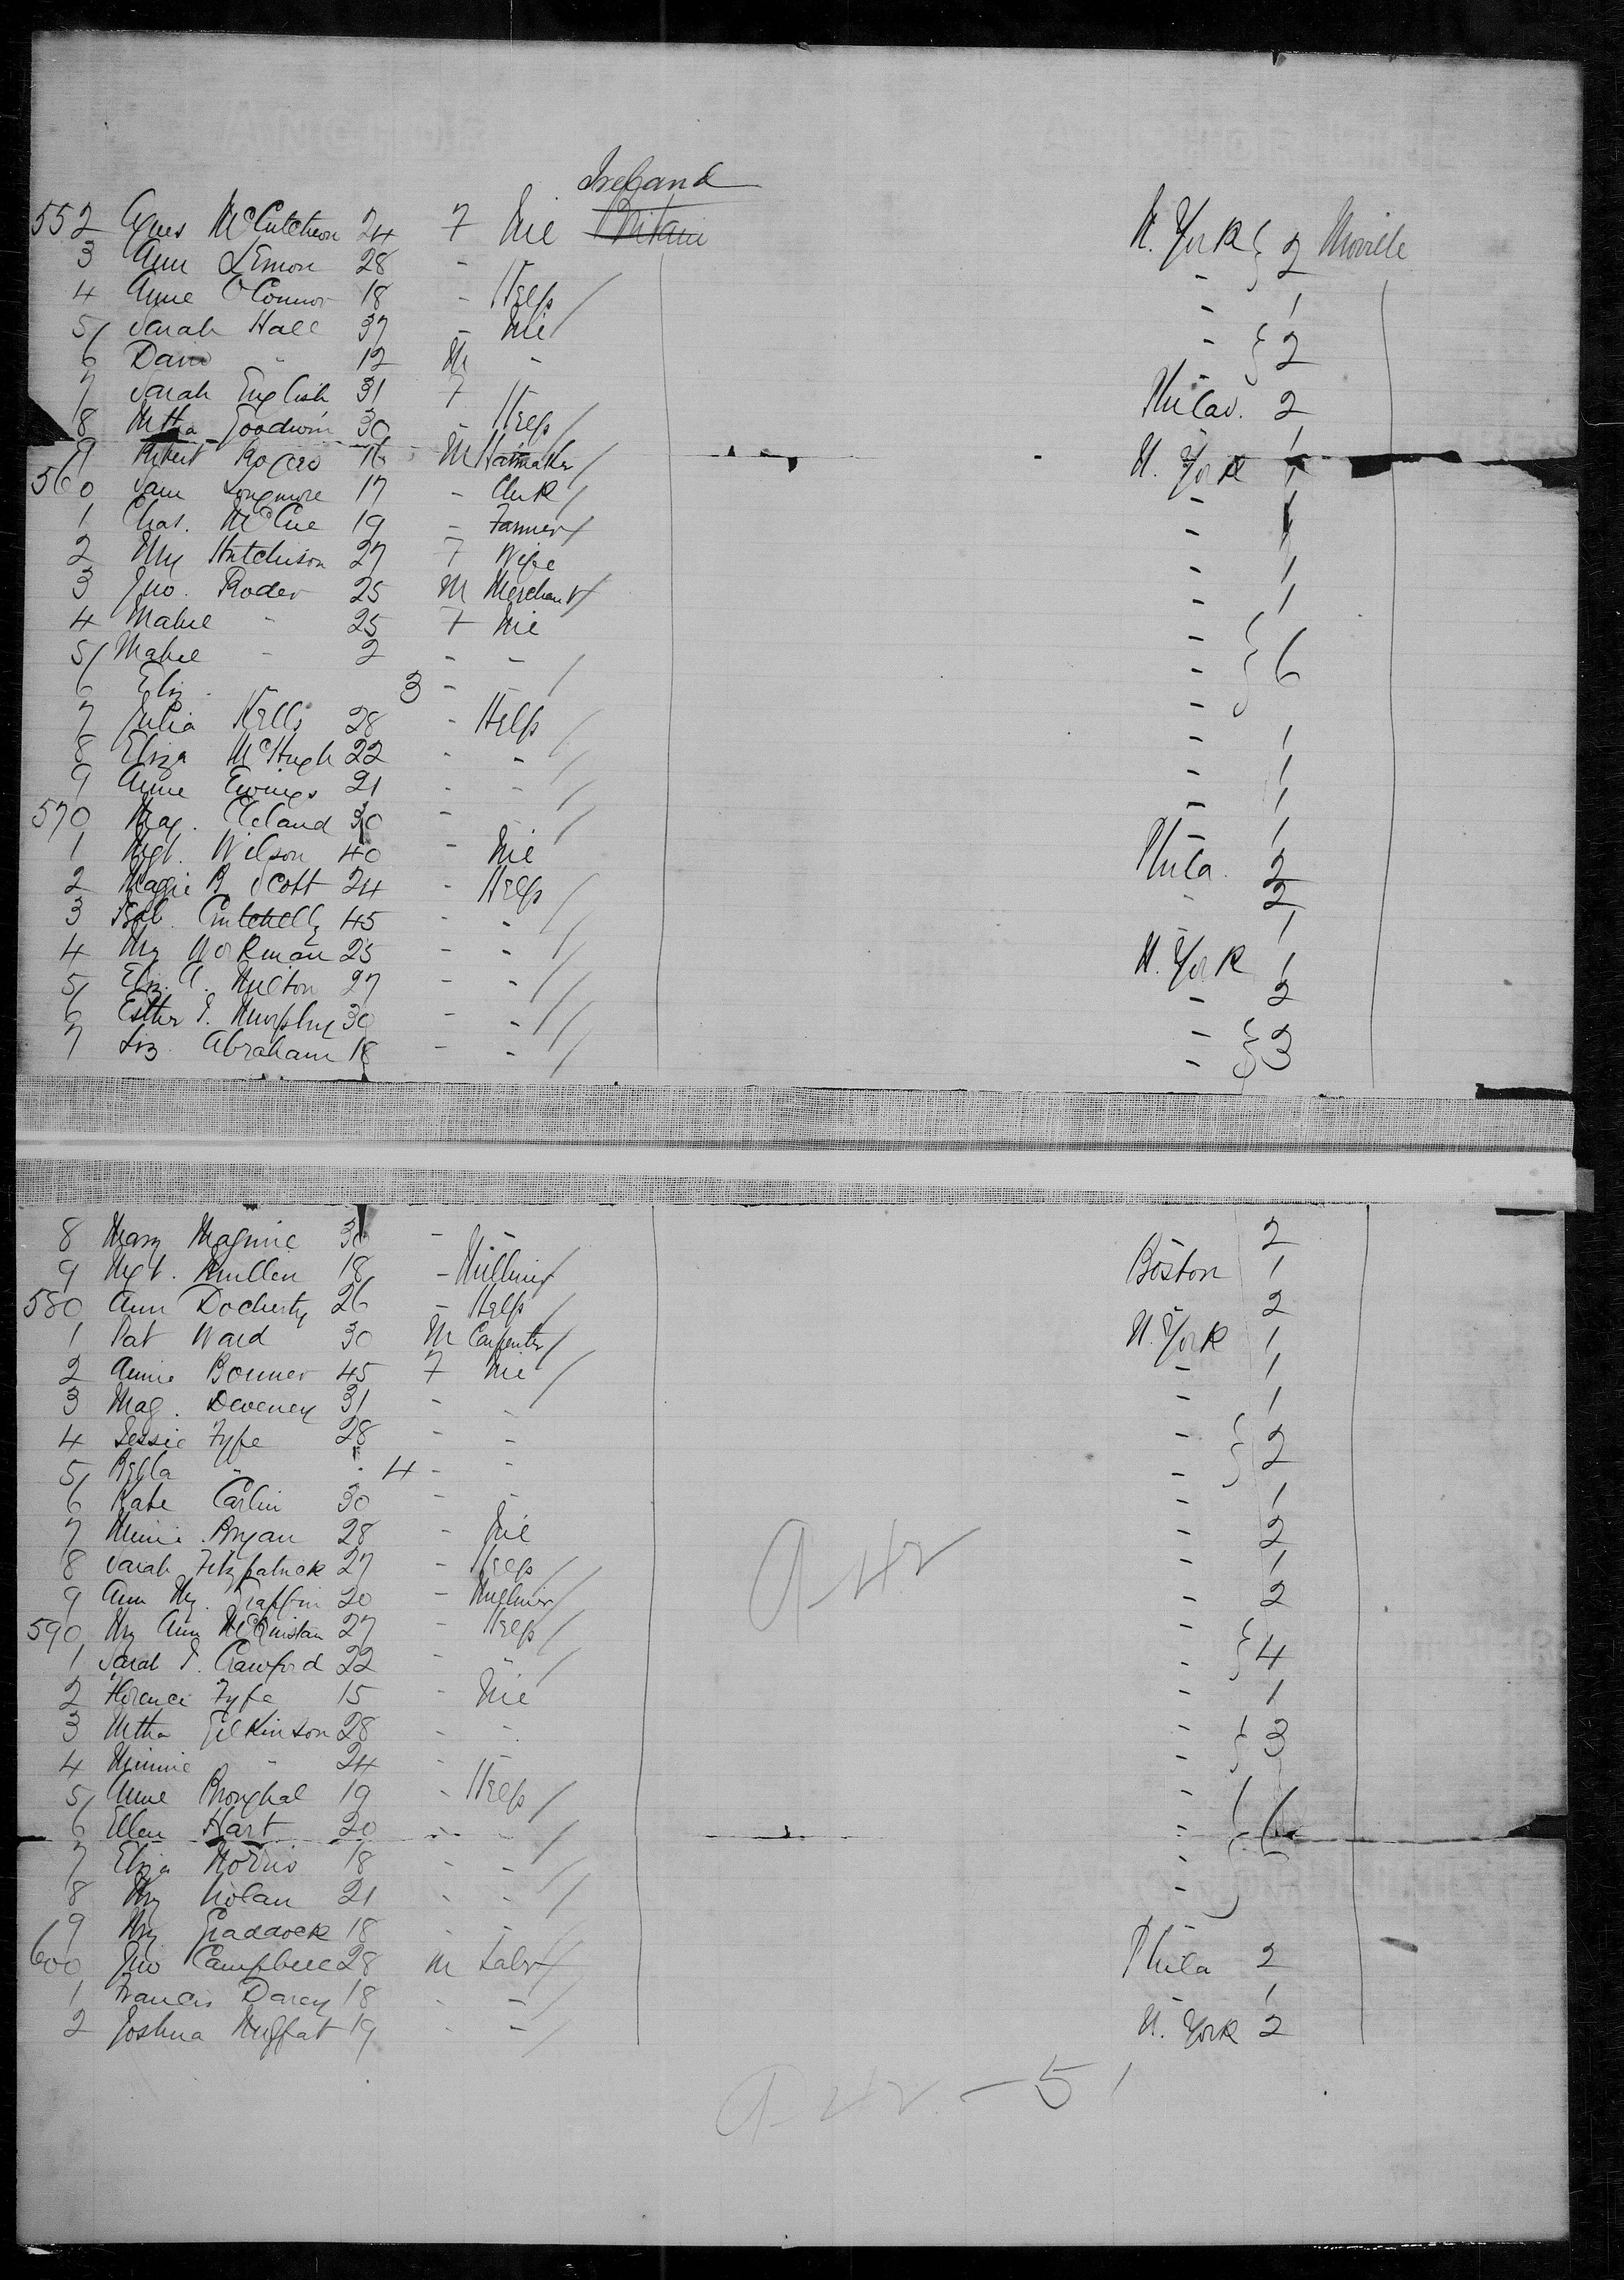 Ireland
552 Agnes McCutcheon 24 F Nil Britain N. York } 2 Moville
3 Ann Lemon 28 -
4 Anne O'Connor 18 - Help / - 1
5 Sarah Hall 37 - Nil / - } 2
6 David " 12 M - -
7 Sarah English 31 F - Philad. 2
8 Mtha Goodwin 30 - Help / - 1
9 Robert Rogers 16 M Hatmaker / N. York 1
560 Sam Longmore 17 - Clerk / - 1
1 Chas. McCue 19 - Farmer / - 1
2 My Hutchison 27 F Wife - 1
3 Jno. Roder 25 M Merchant / - 1
4 Mabel " 25 F Nil - } 6
5 Mabel - 2 - - -
6 Eliz. - 3 - - / -
7 Julia Kells 28 - Help / - 1
8 Eliza McHugh 22 - - / - 1
9 Anne Ewings 21 - - / - 1
570 Mag. Cleland 30 - - / - 1
1 Mgt. Wilson 40 - Nil Phila. 2
2 Maggie B Scott 24 - Help / - 2
3 45 - - / - 1
4 My Workman 25 - - / N. York 1
5 Eliz. A. Milton 27 - - / - 2
6 Esther J. Murphy 30 - - / - } 3
7 Liz. Abraham 18 - - / -
8 Mary Maguire 30 - - - 2
9 Mgt. Mullen 18 - Milliner / Boston 1
580 Ann Docherty 26 - Help / - 2
1 Pat Ward 30 M Carpenter / N. York 1
2 Annie Bonner 45 F Nil / - 1
3 Mag. Deveney 31 - - - 1
4 Jessie Fyfe 28 - - - } 2
5 Bella " 4 - - -
6 Kate Carlin 30 - - - 1
7 Minnie Bryan 28 - Nil - 2
8 Sarah Fitzpatrick 27 - Help / - 1
9 Ann My. 20 - Milliner / - 2
590 My Ann McQuistan 27 - Help / - } 4
1 Sarah J. Crawford 22 - - / -
2 Florence Fyfe 15 - Nil - 1
3 Mtha Gilkinson 28 - - - } 3
4 Minnie " 24 - - -
5 Anne 19 - Help / - } 6
6 Ellen Hart 20 - - / -
7 Eliza Norris 18 - - / -
8 My Nolan 21 - - / -
9 My Craddock 18 - - / -
600 Jno Campbell 28 M Labr / Phila 2
1 Francis Darcy 18 - - / - 1
2 Joshua Moffat 19 - - / N. York 2
A 42
A 42 - 51